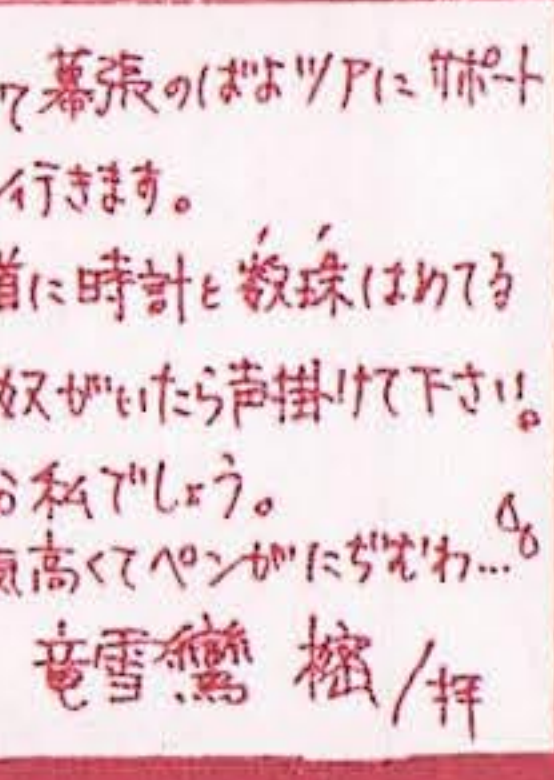 て幕張のばよツアにサポート
行きます。
首に時計と数珠はめてる
奴がいたら声掛けて下さい。
私でしょう。
気高くてペンがにぢむわ…
竜雪鸞 樒/拝